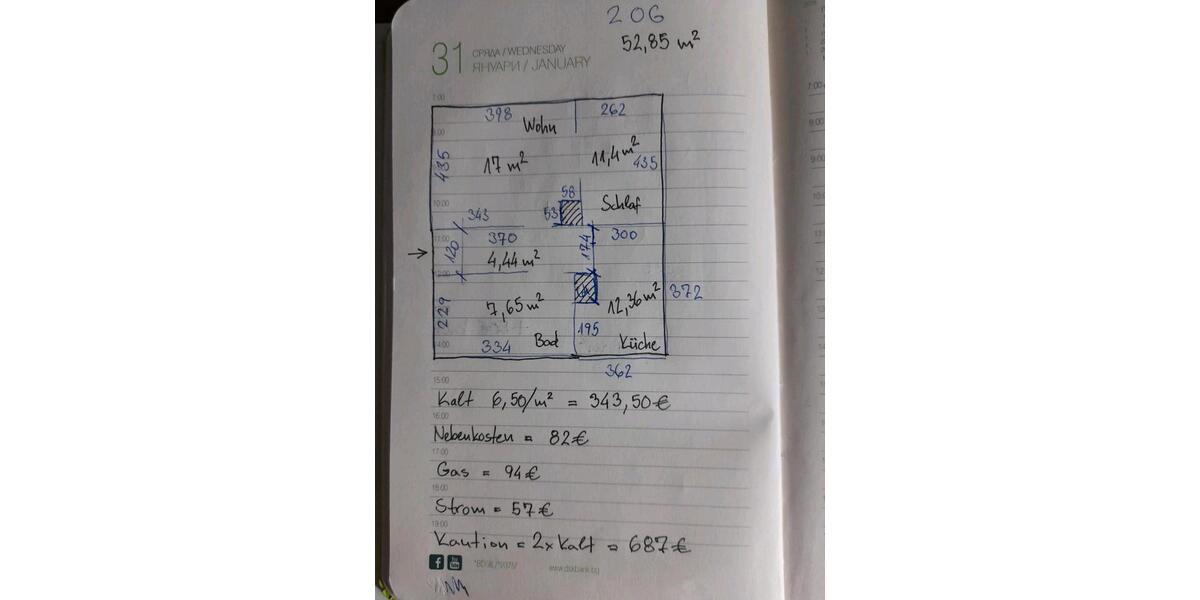 206
52,85 m²
31 СРЯДА / WEDNESDAY
ЯНУАРИ / JANUARY
7:00
398
262
Wohn
9:00
435
17 m²
11,4 m²
435
58
10:00
53
Schlaf
343
11:00
370
174
300
→ 120
4,44 m²
12:00
7,65 m²
12,36 m²
372
229
195
14:00
334
Bad
Küche
362
15:00
Kalt 6,50/m² = 343,50€
16:00
Nebenkosten = 82€
17:00
Gas = 94€
18:00
Strom = 57€
19:00
Kaution = 2x Kalt = 687€
www.dskbank.bg